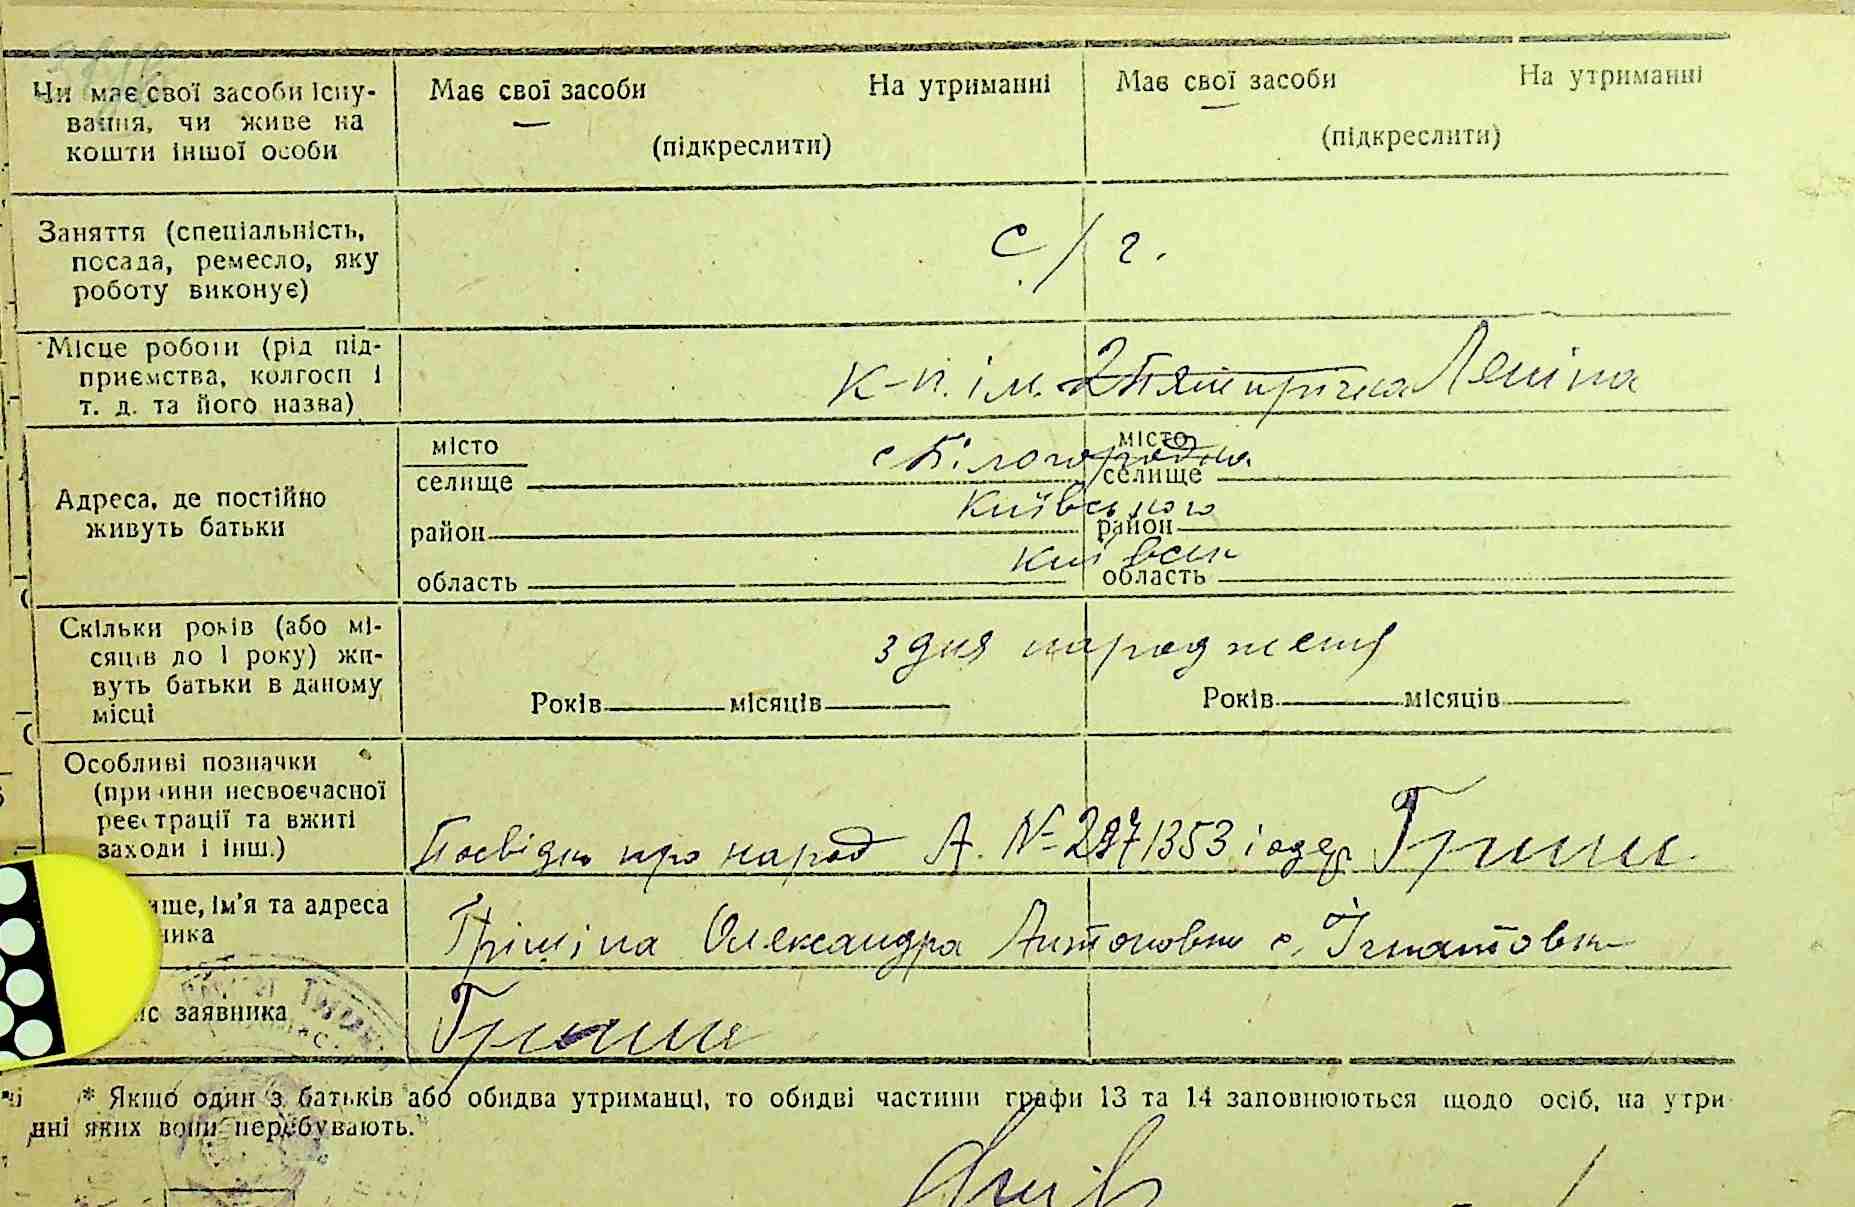 Чи має свої засоби існу-
вання, чи живе на
кошти іншої особи
Має свої засоби На утриманні
(підкреслити)
Має свої засоби На утриманні
(підкреслити)
Заняття (спеціальність,
посада, ремесло, яку
роботу виконує)
с/г.
Місце роботи (рід під-
приємства, колгосп і
т. д. та його назва)
к-п. ім. 2 П'ятирічка Леніна
Адреса, де постійно
живуть батьки
місто
селище
район
область
місто
селище
район
область
с Білогородка
Київського
Київськ
Скільки років (або мі-
сяців до 1 року) жи-
вуть батьки в даному
місці
з дня народження
Років місяців
Років місяців
Особливі позначки
(причини несвоєчасної
реєстрації та вжиті
заходи і інш.)
Посвідку про народ А. № 2971353 і одер
ище, ім'я та адреса
ника
Грішіна Олександра Антоновна с, Ігнатовка
ис заявника
* Якщо один з батьків або обидва утриманці, то обидві частини графи 13 та 14 заповнюються щодо осіб, на утри
нні яких вони перебувають.